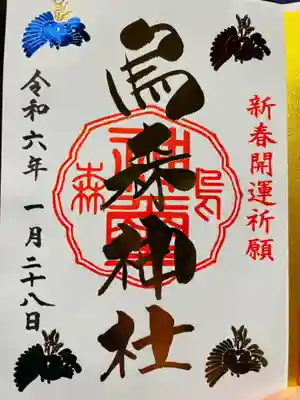 新春開運祈願
烏森神社
烏森
神璽
令和六年 一月二十八日